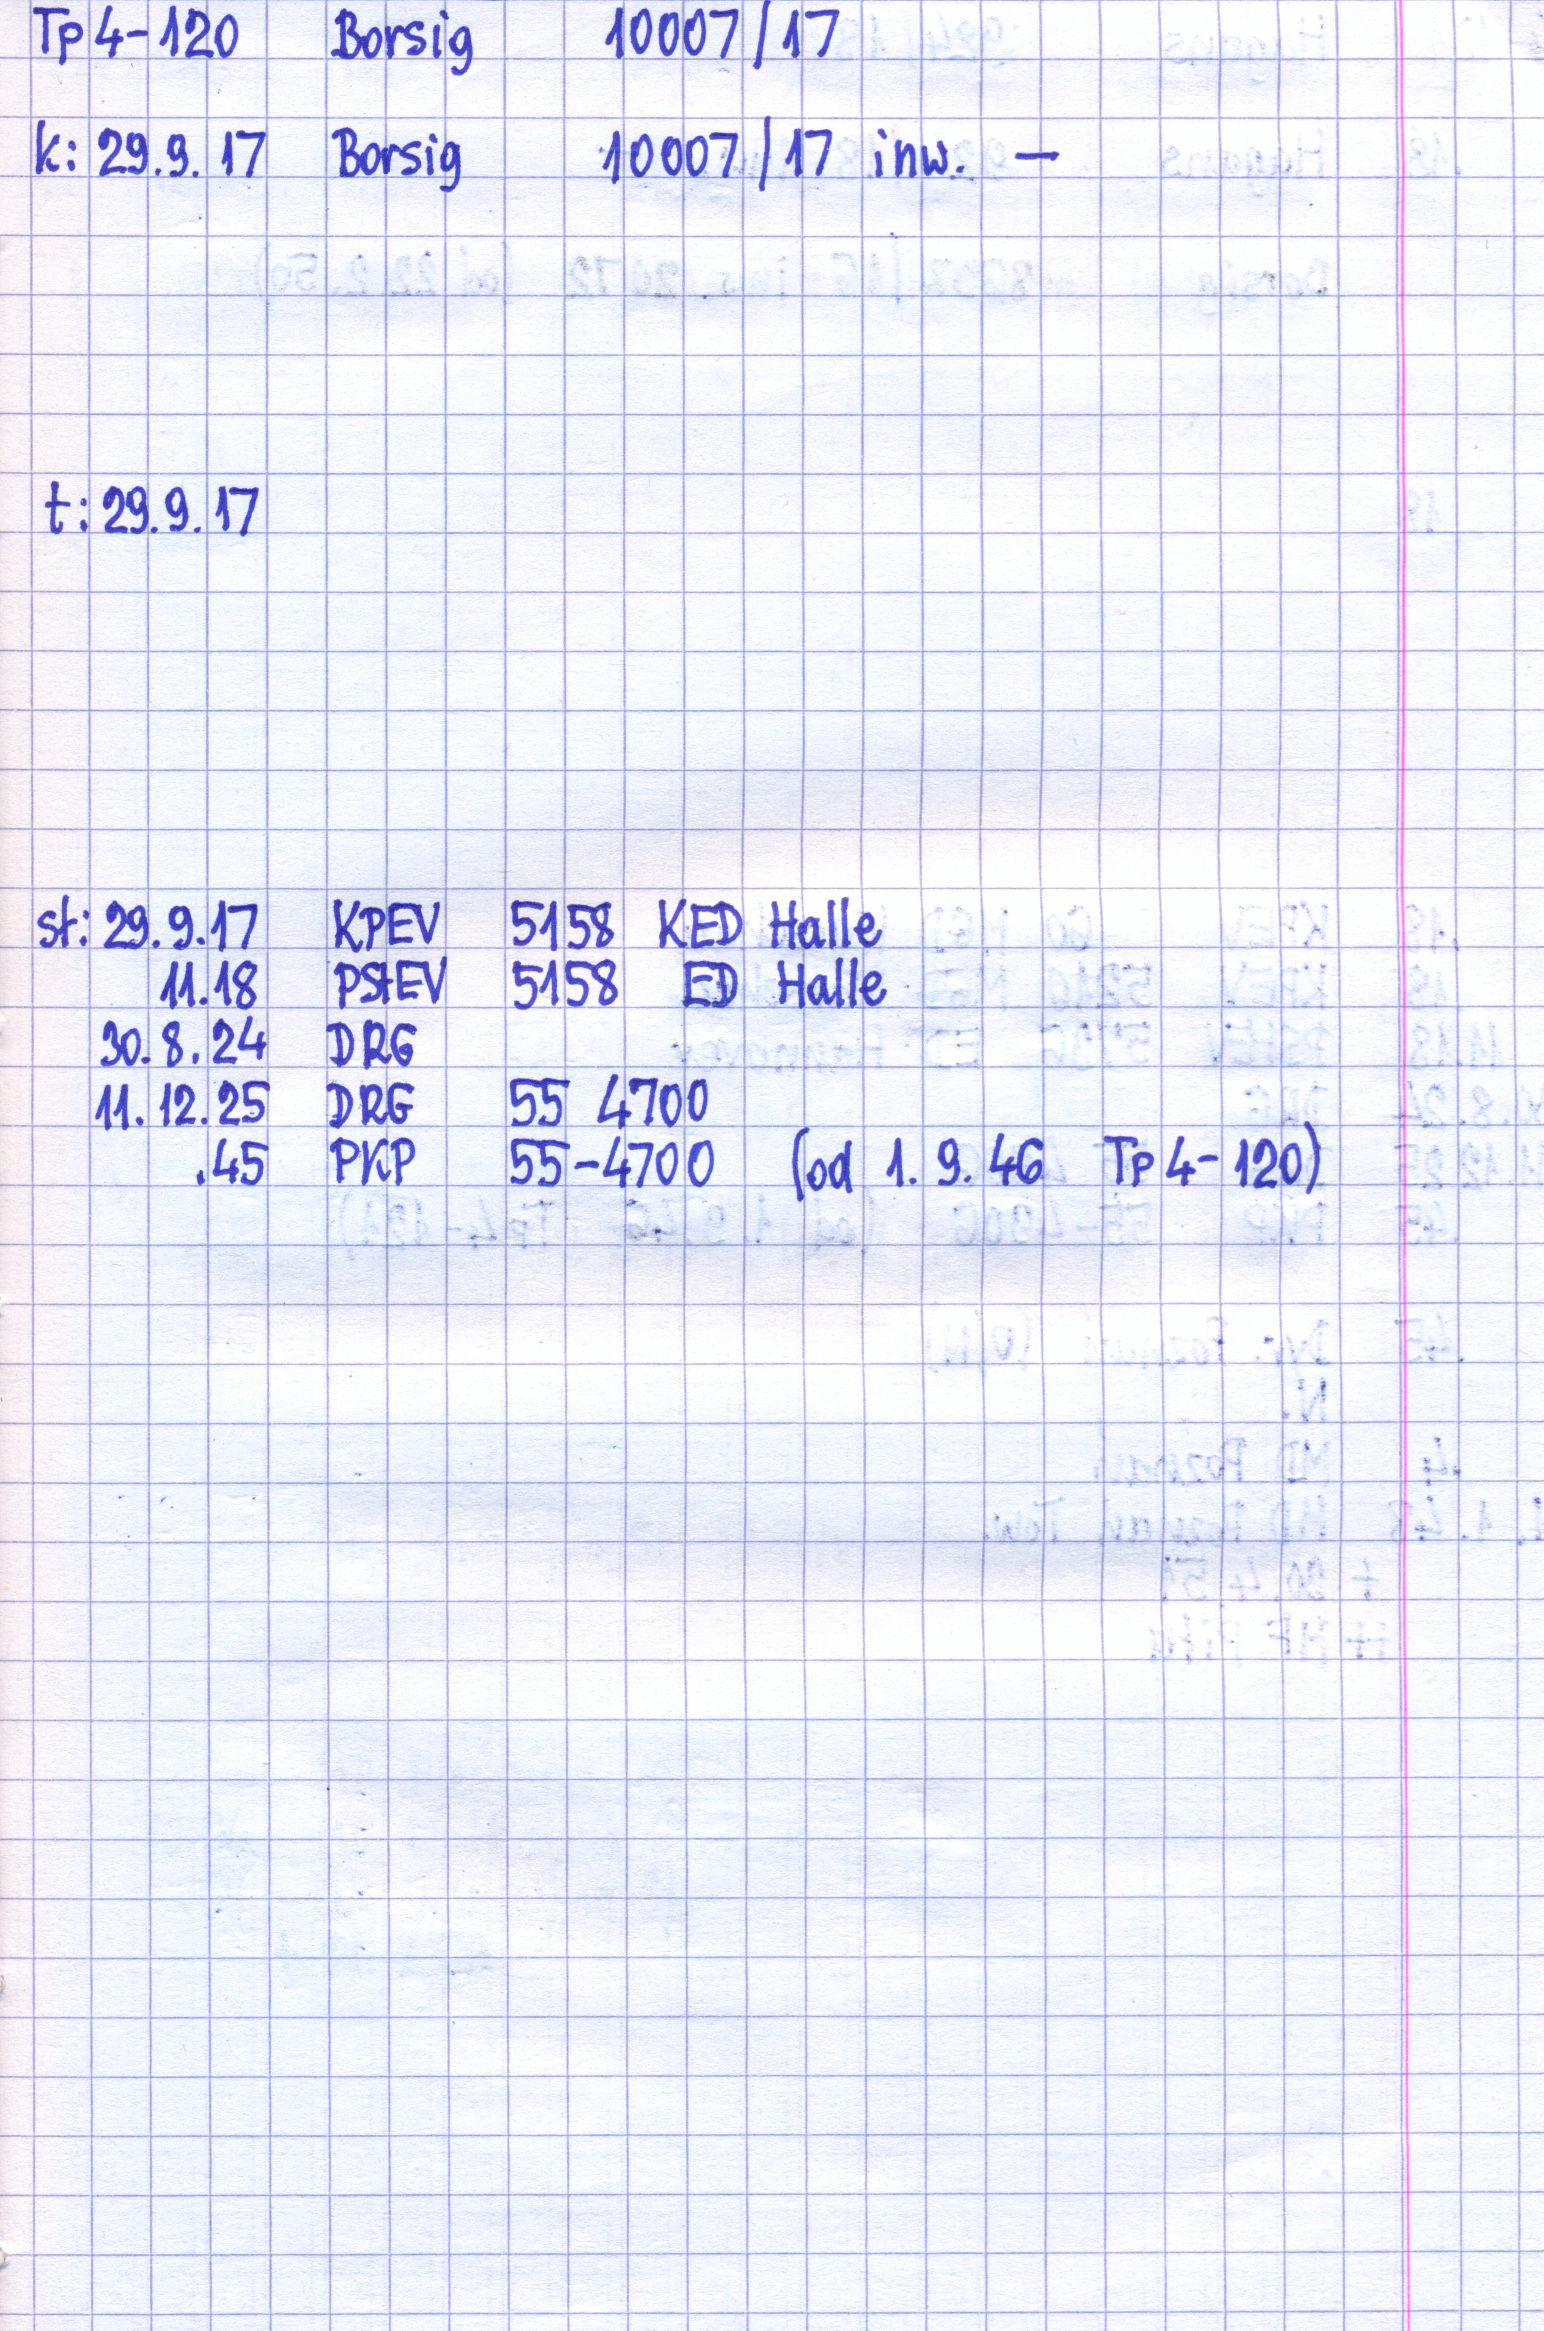 Tp4-120 Borsig 10007/17
k: 29.9.17 Borsig 10007/17 inw. —
t: 29.9.17
st: 29.9.17 KPEV 5158 KED Halle
11.18 PStEV 5158 ED Halle
30.8.24 DRG
11.12.25 DRG 55 4700
.45 PKP 55-4700 (od 1.9.46 Tp4-120)